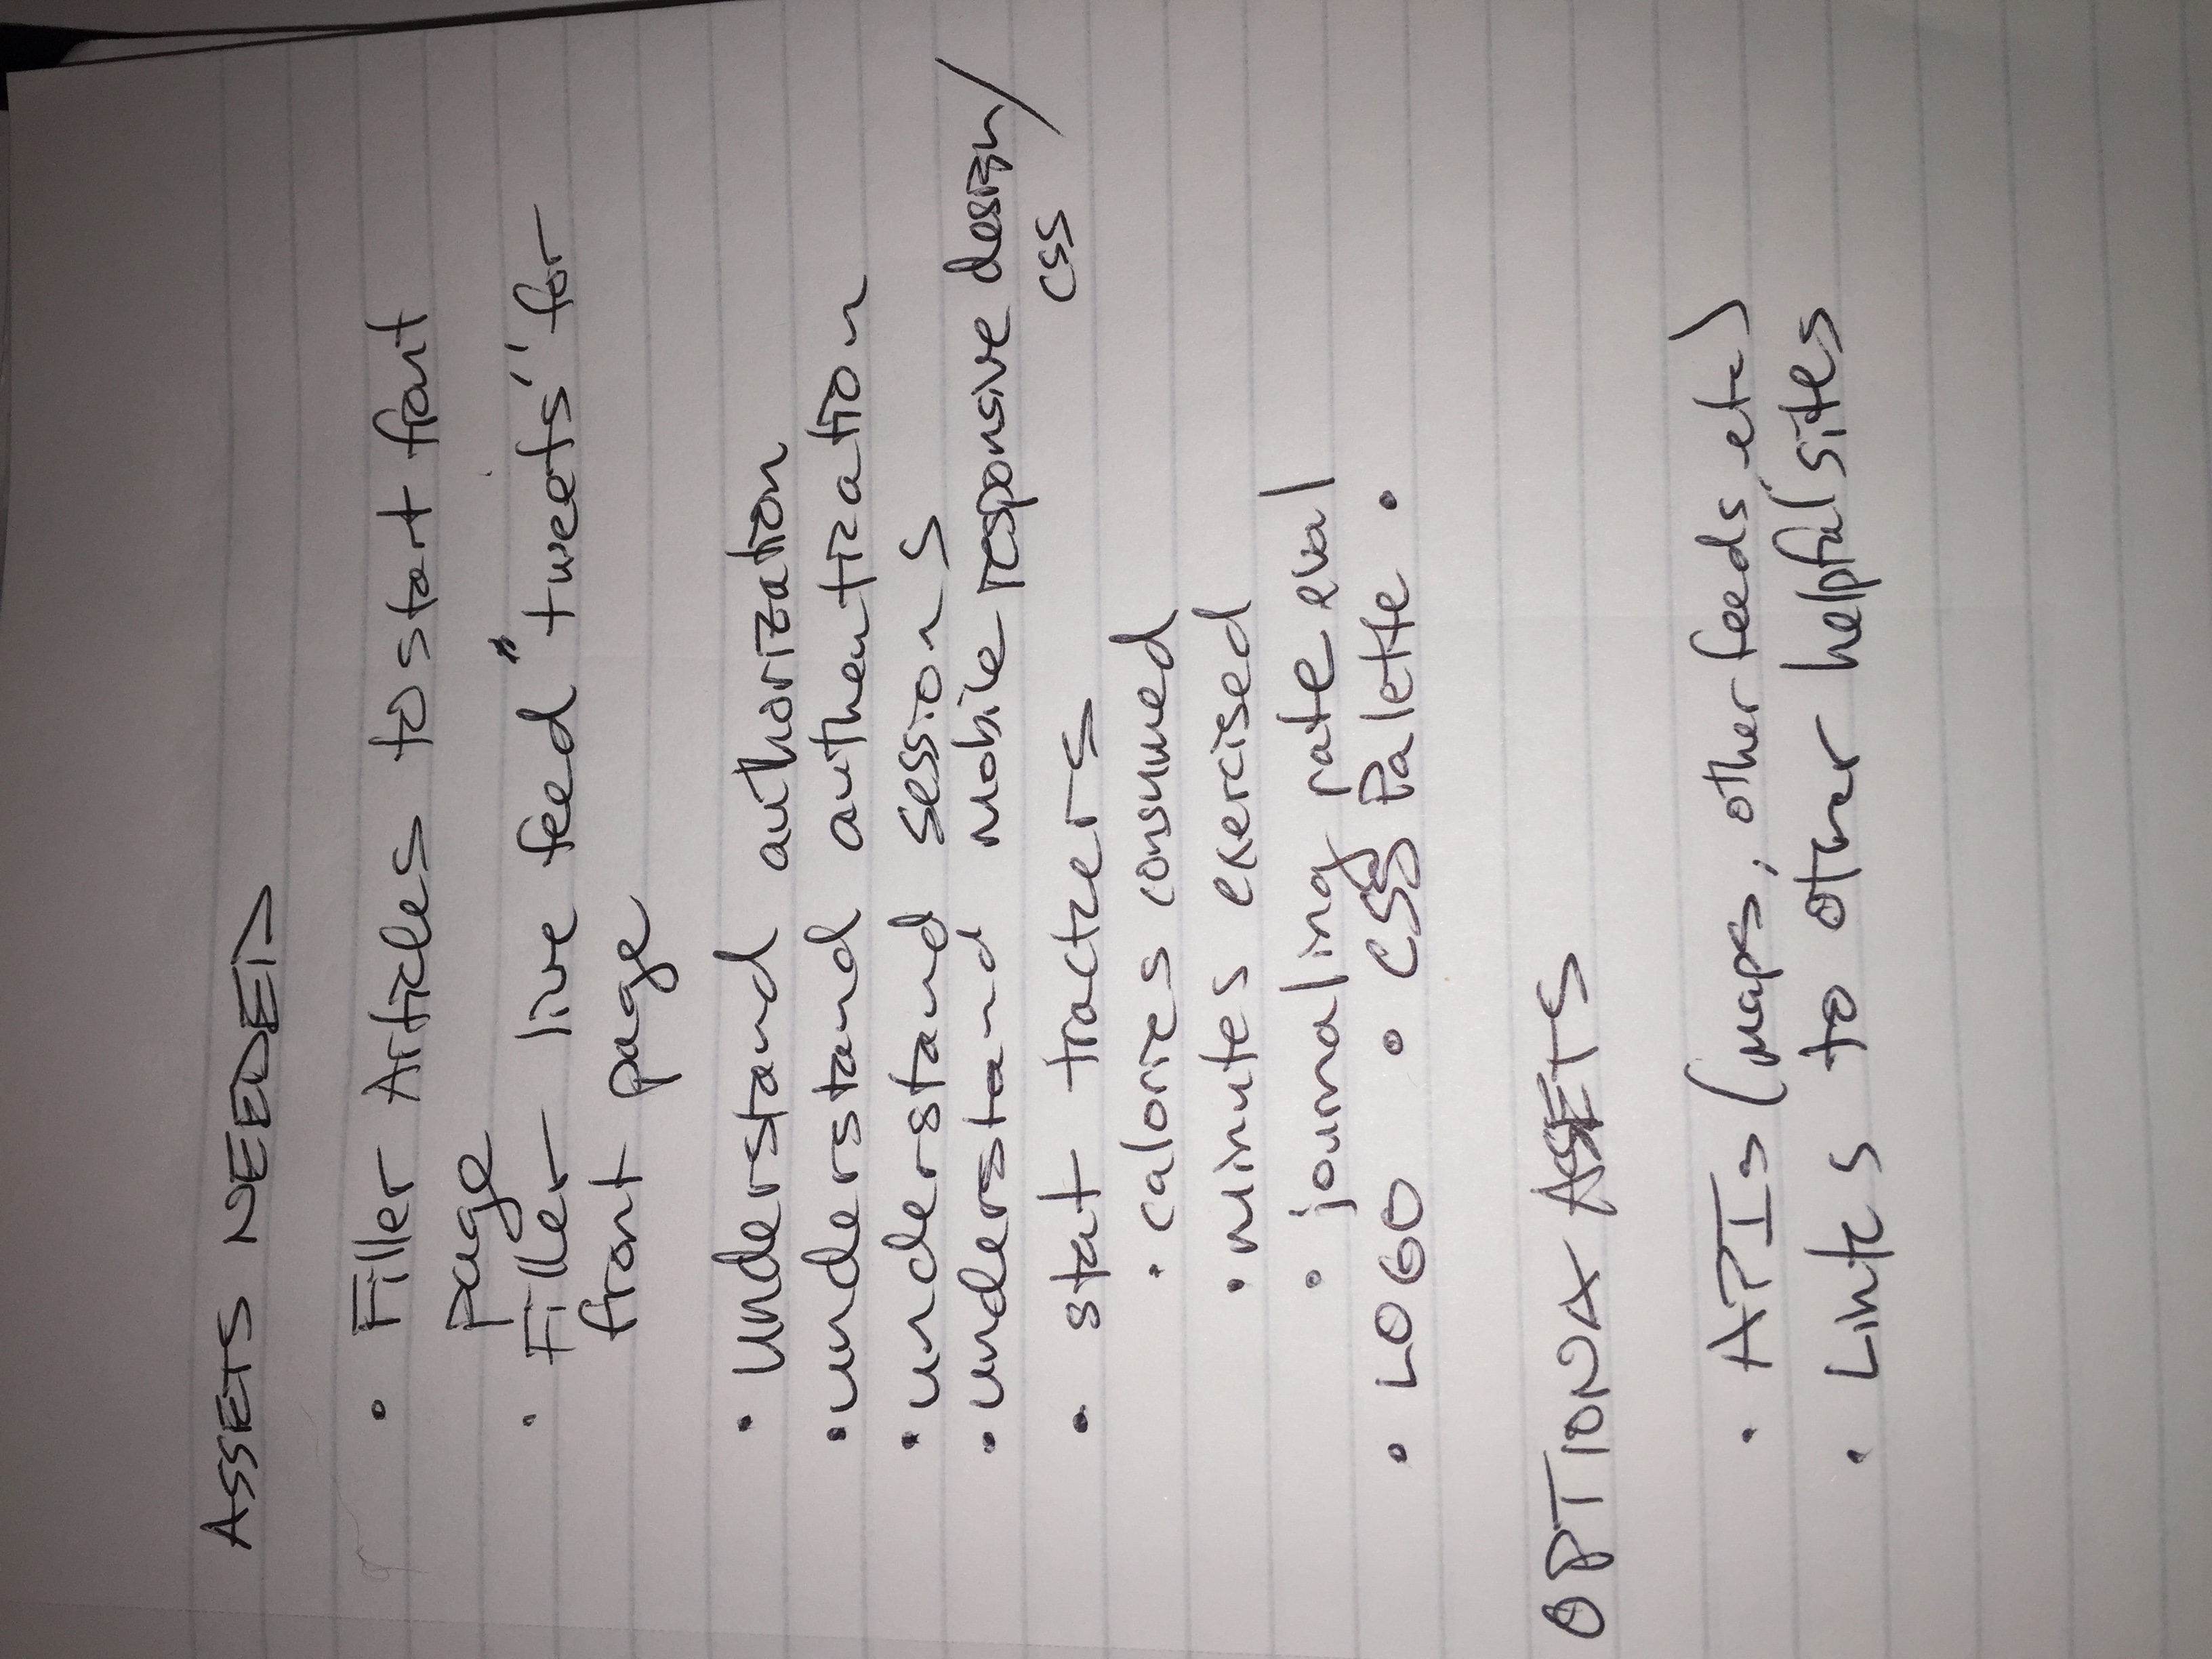 ASSETS NEEDED
• Filler Articles to start front
page
• Filler live feed "tweets" for
front page
• understand authorization
• understand authentization
• understand sessions
• understand mobile responsive design/
css
• stat trackers
• calories consumed
• minutes exercised
• journaling rate eval
• LOGO • CSS Palette •
OPTIONAL ASSETS
• APIs (maps, other feeds, etc)
• Links to other helpful sites